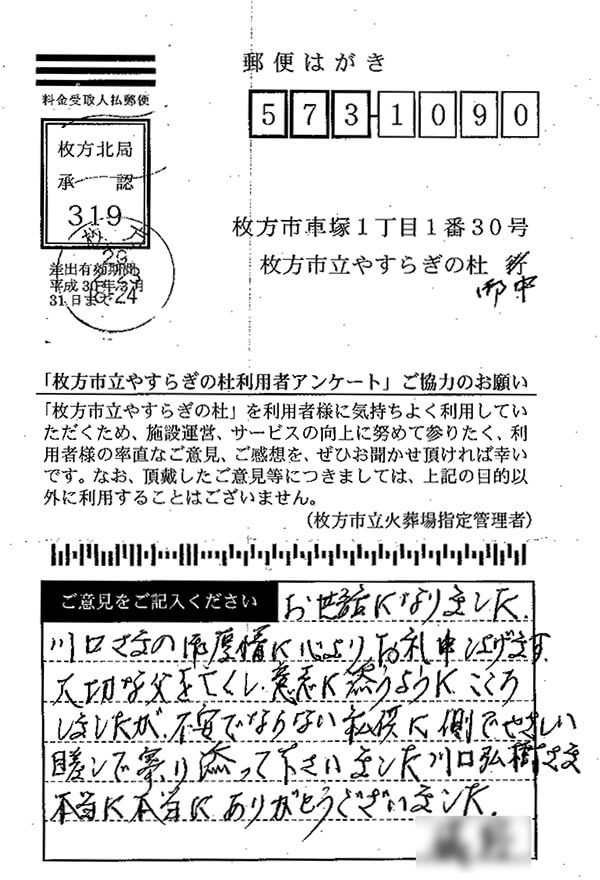 郵便はがき
料金受取人払郵便
573-1090
枚方北局
承認
319
枚方
29
8-24
差出有効期間
平成30年3月
31日まで
枚方市車塚1丁目1番30号
枚方市立やすらぎの杜 行
御中
「枚方市立やすらぎの杜利用者アンケート」ご協力のお願い
「枚方市立やすらぎの杜」を利用者様に気持ちよく利用してい
ただくため、施設運営、サービスの向上に努めて参りたく、利
用者様の率直なご意見、ご感想を、ぜひお聞かせ頂ければ幸い
です。なお、頂戴したご意見等につきましては、上記の目的以
外に利用することはございません。
(枚方市立火葬場指定管理者)
ご意見をご記入ください
お世話になりました。
川口さまの御厚情に心より、お礼申し上げます。
大切な父を亡くし、意志に添うように、こころ
しましたが、不安でならない私供に側でやさしい
眼差しで寄り添って下さいました川口弘樹さま
本当に本当にありがとうございました。